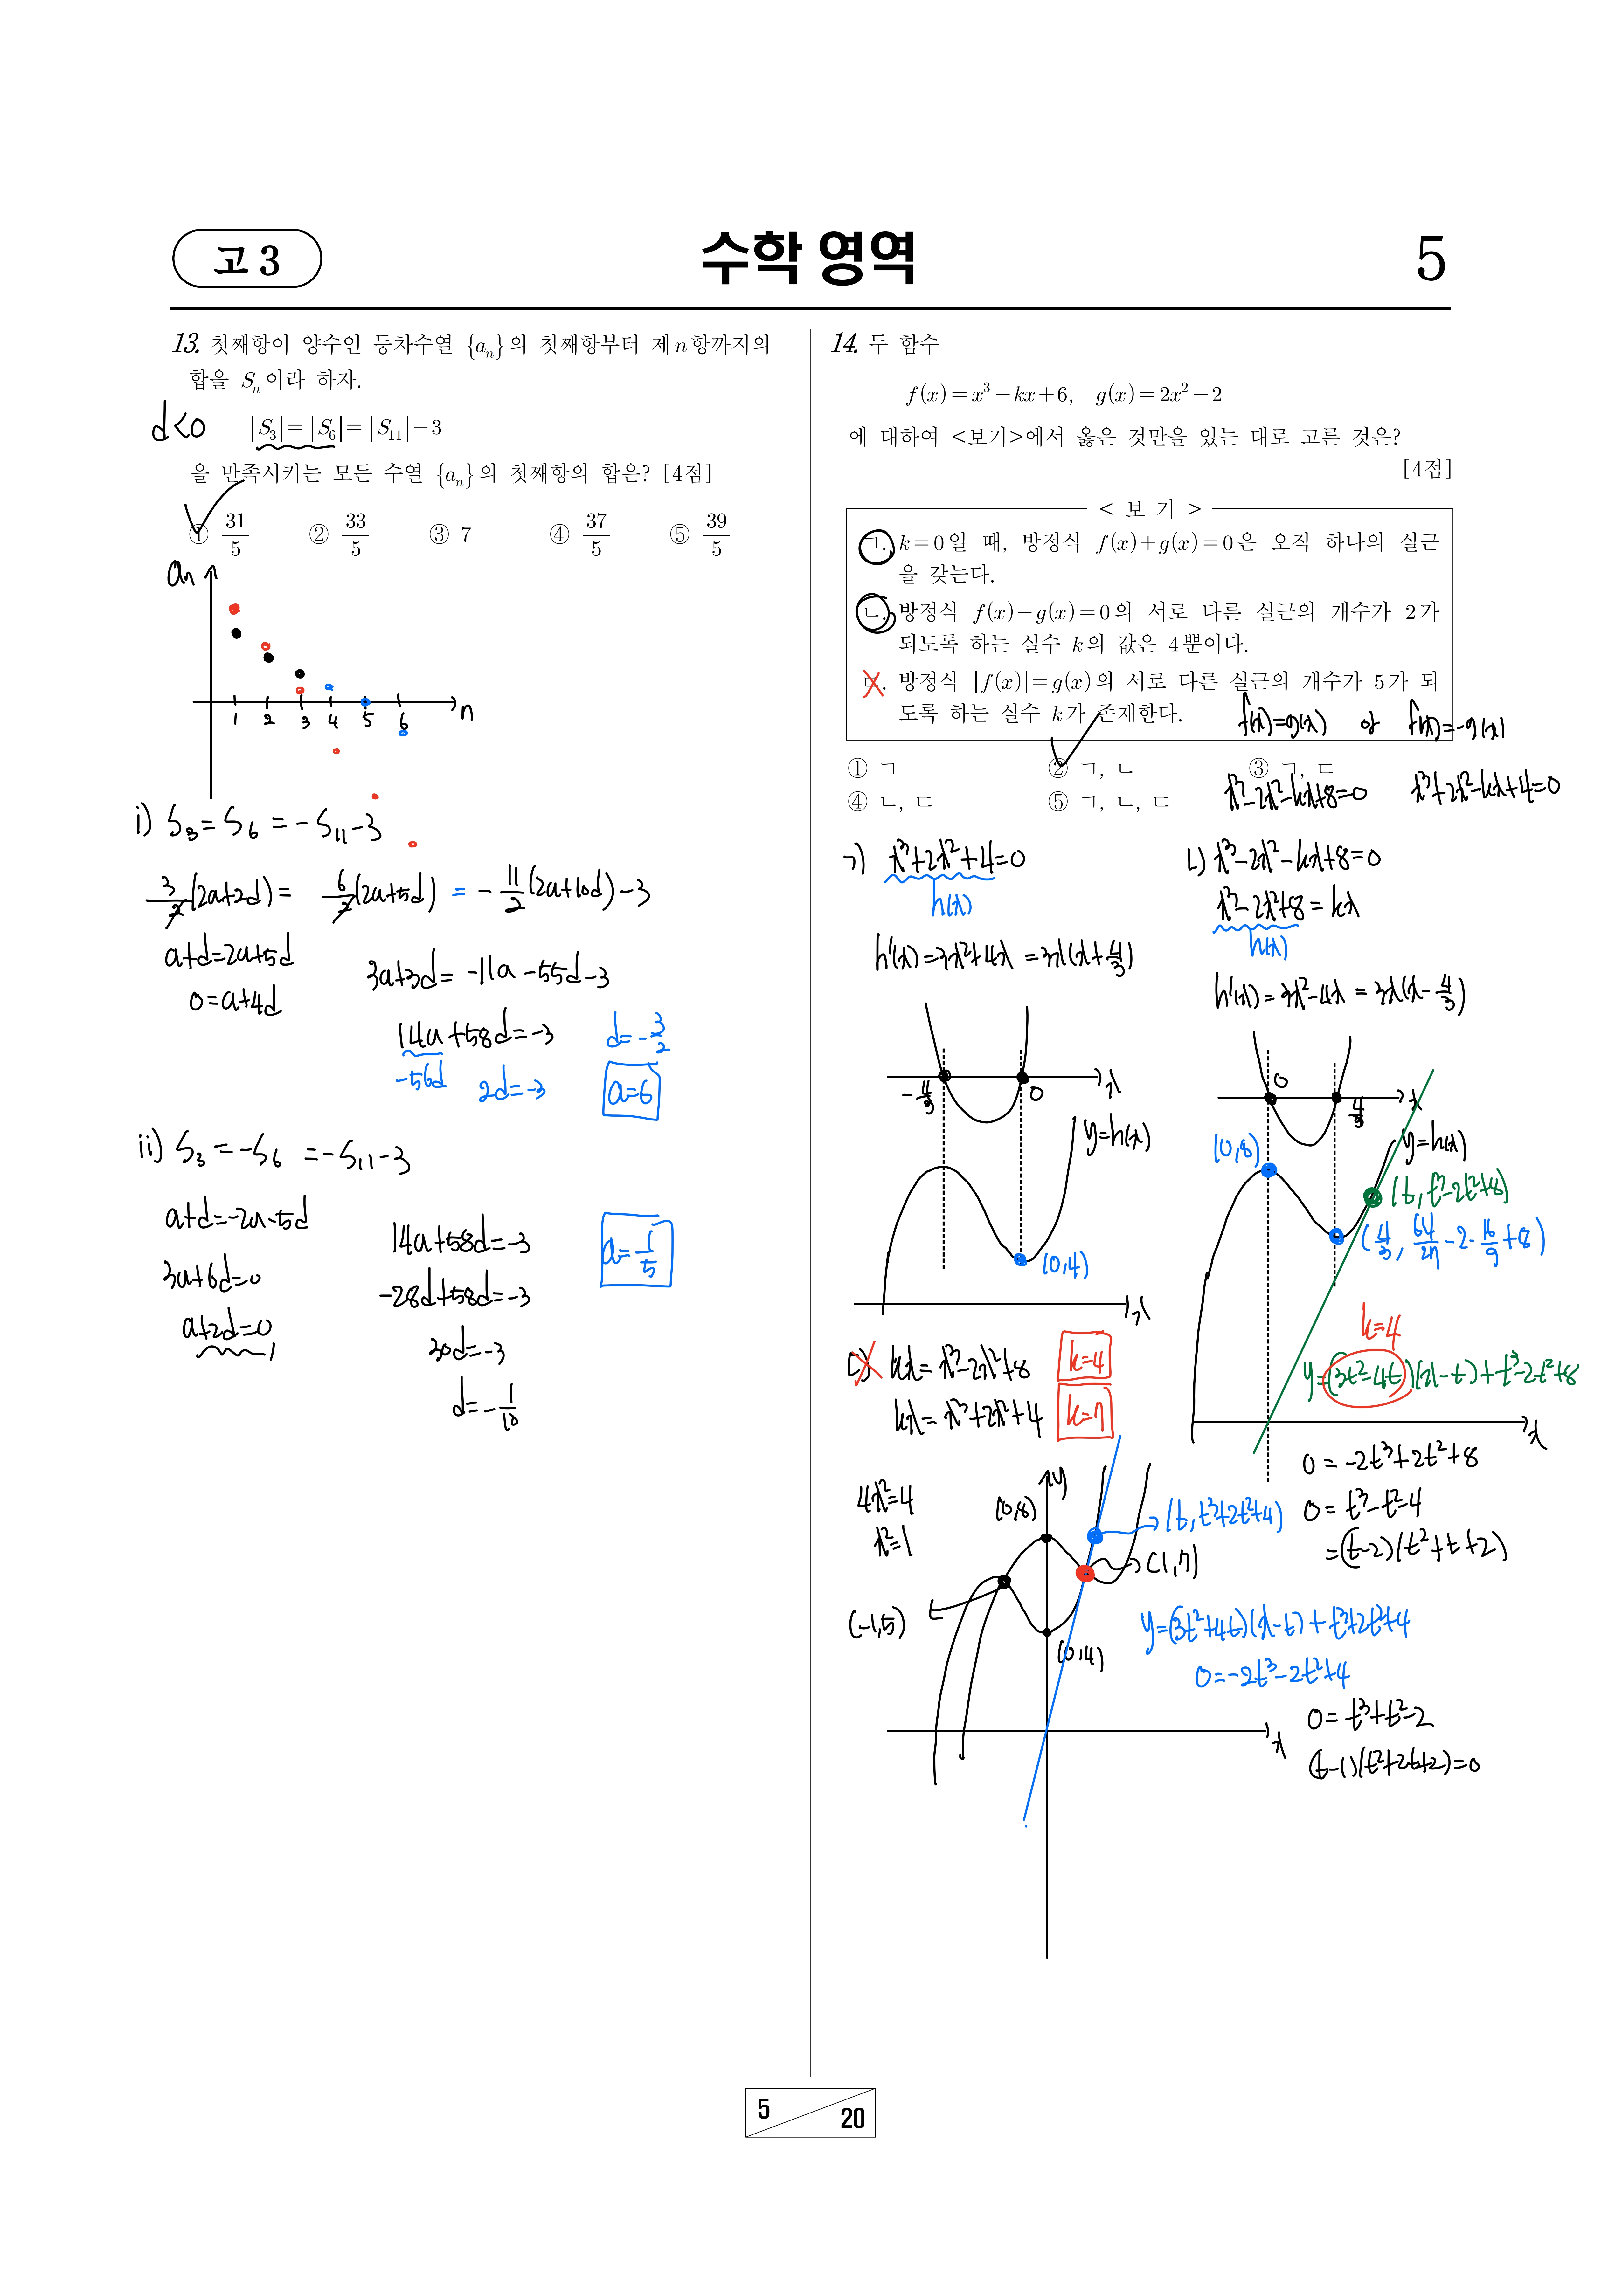 고 3
수학 영역
5
13. 첫째항이 양수인 등차수열 {aₙ}의 첫째항부터 제n항까지의
합을 Sₙ이라 하자.
d<0
|S₃| = |S₆| = |S₁₁| − 3
을 만족시키는 모든 수열 {aₙ}의 첫째항의 합은? [4점]
① 31/5 ② 33/5 ③ 7 ④ 37/5 ⑤ 39/5
aₙ
1 2 3 4 5 6 n
i) S₃ = S₆ = −S₁₁−3
3/2(2a+2d) = 6/2(2a+5d) = −11/2(2a+10d)−3
a+d=2a+5d
0=a+4d
3a+3d = −11a−55d−3
14a+58d=−3
−56d
2d=−3
d=−3/2
a=6
ii) S₃ = −S₆ = −S₁₁−3
a+d=−2a−5d
3a+6d=0
a+2d=0
14a+58d=−3
−28d+58d=−3
30d=−3
d=−1/10
a=1/5
14. 두 함수
f(x)=x³−kx+6, g(x)=2x²−2
에 대하여 <보기>에서 옳은 것만을 있는 대로 고른 것은?
[4점]
< 보 기 >
ㄱ. k=0일 때, 방정식 f(x)+g(x)=0은 오직 하나의 실근
을 갖는다.
ㄴ. 방정식 f(x)−g(x)=0의 서로 다른 실근의 개수가 2가
되도록 하는 실수 k의 값은 4뿐이다.
ㄷ. 방정식 |f(x)|=g(x)의 서로 다른 실근의 개수가 5가 되
도록 하는 실수 k가 존재한다.
f(x)=g(x) or f(x)=−g(x)
① ㄱ ② ㄱ, ㄴ ③ ㄱ, ㄷ
④ ㄴ, ㄷ ⑤ ㄱ, ㄴ, ㄷ
x³−2x²−kx+8=0 x³+2x²−kx+4=0
ㄱ) x³+2x²+4=0
h(x)
h'(x)=3x²+4x=3x(x+4/3)
−4/3 0 x
y=h(x)
(0,4)
x
ㄴ) x³−2x²−kx+8=0
x³−2x²+8=kx
h(x)
h'(x)=3x²−4x=3x(x−4/3)
0 4/3 x
y=h(x)
(0,8)
(t, t³−2t²+8)
(4/3, 64/27−2·16/9+8)
k=4
y=(3t²−4t)(x−t)+t³−2t²+8
x
0=−2t³+2t²+8
0=t³−t²−4
=(t−2)(t²+t+2)
ㄷ) kx=x³−2x²+8 k=4
kx=x³+2x²+4 k=7
4x²=4
x²=1
y
(0,8)
(t, t³+2t²+4)
(1,7)
(−1,5)
(0,4)
x
y=(3t²+4t)(x−t)+t³+2t²+4
0=−2t³−2t²+4
0=t³+t²−2
(t−1)(t²+2t+2)=0
5
20